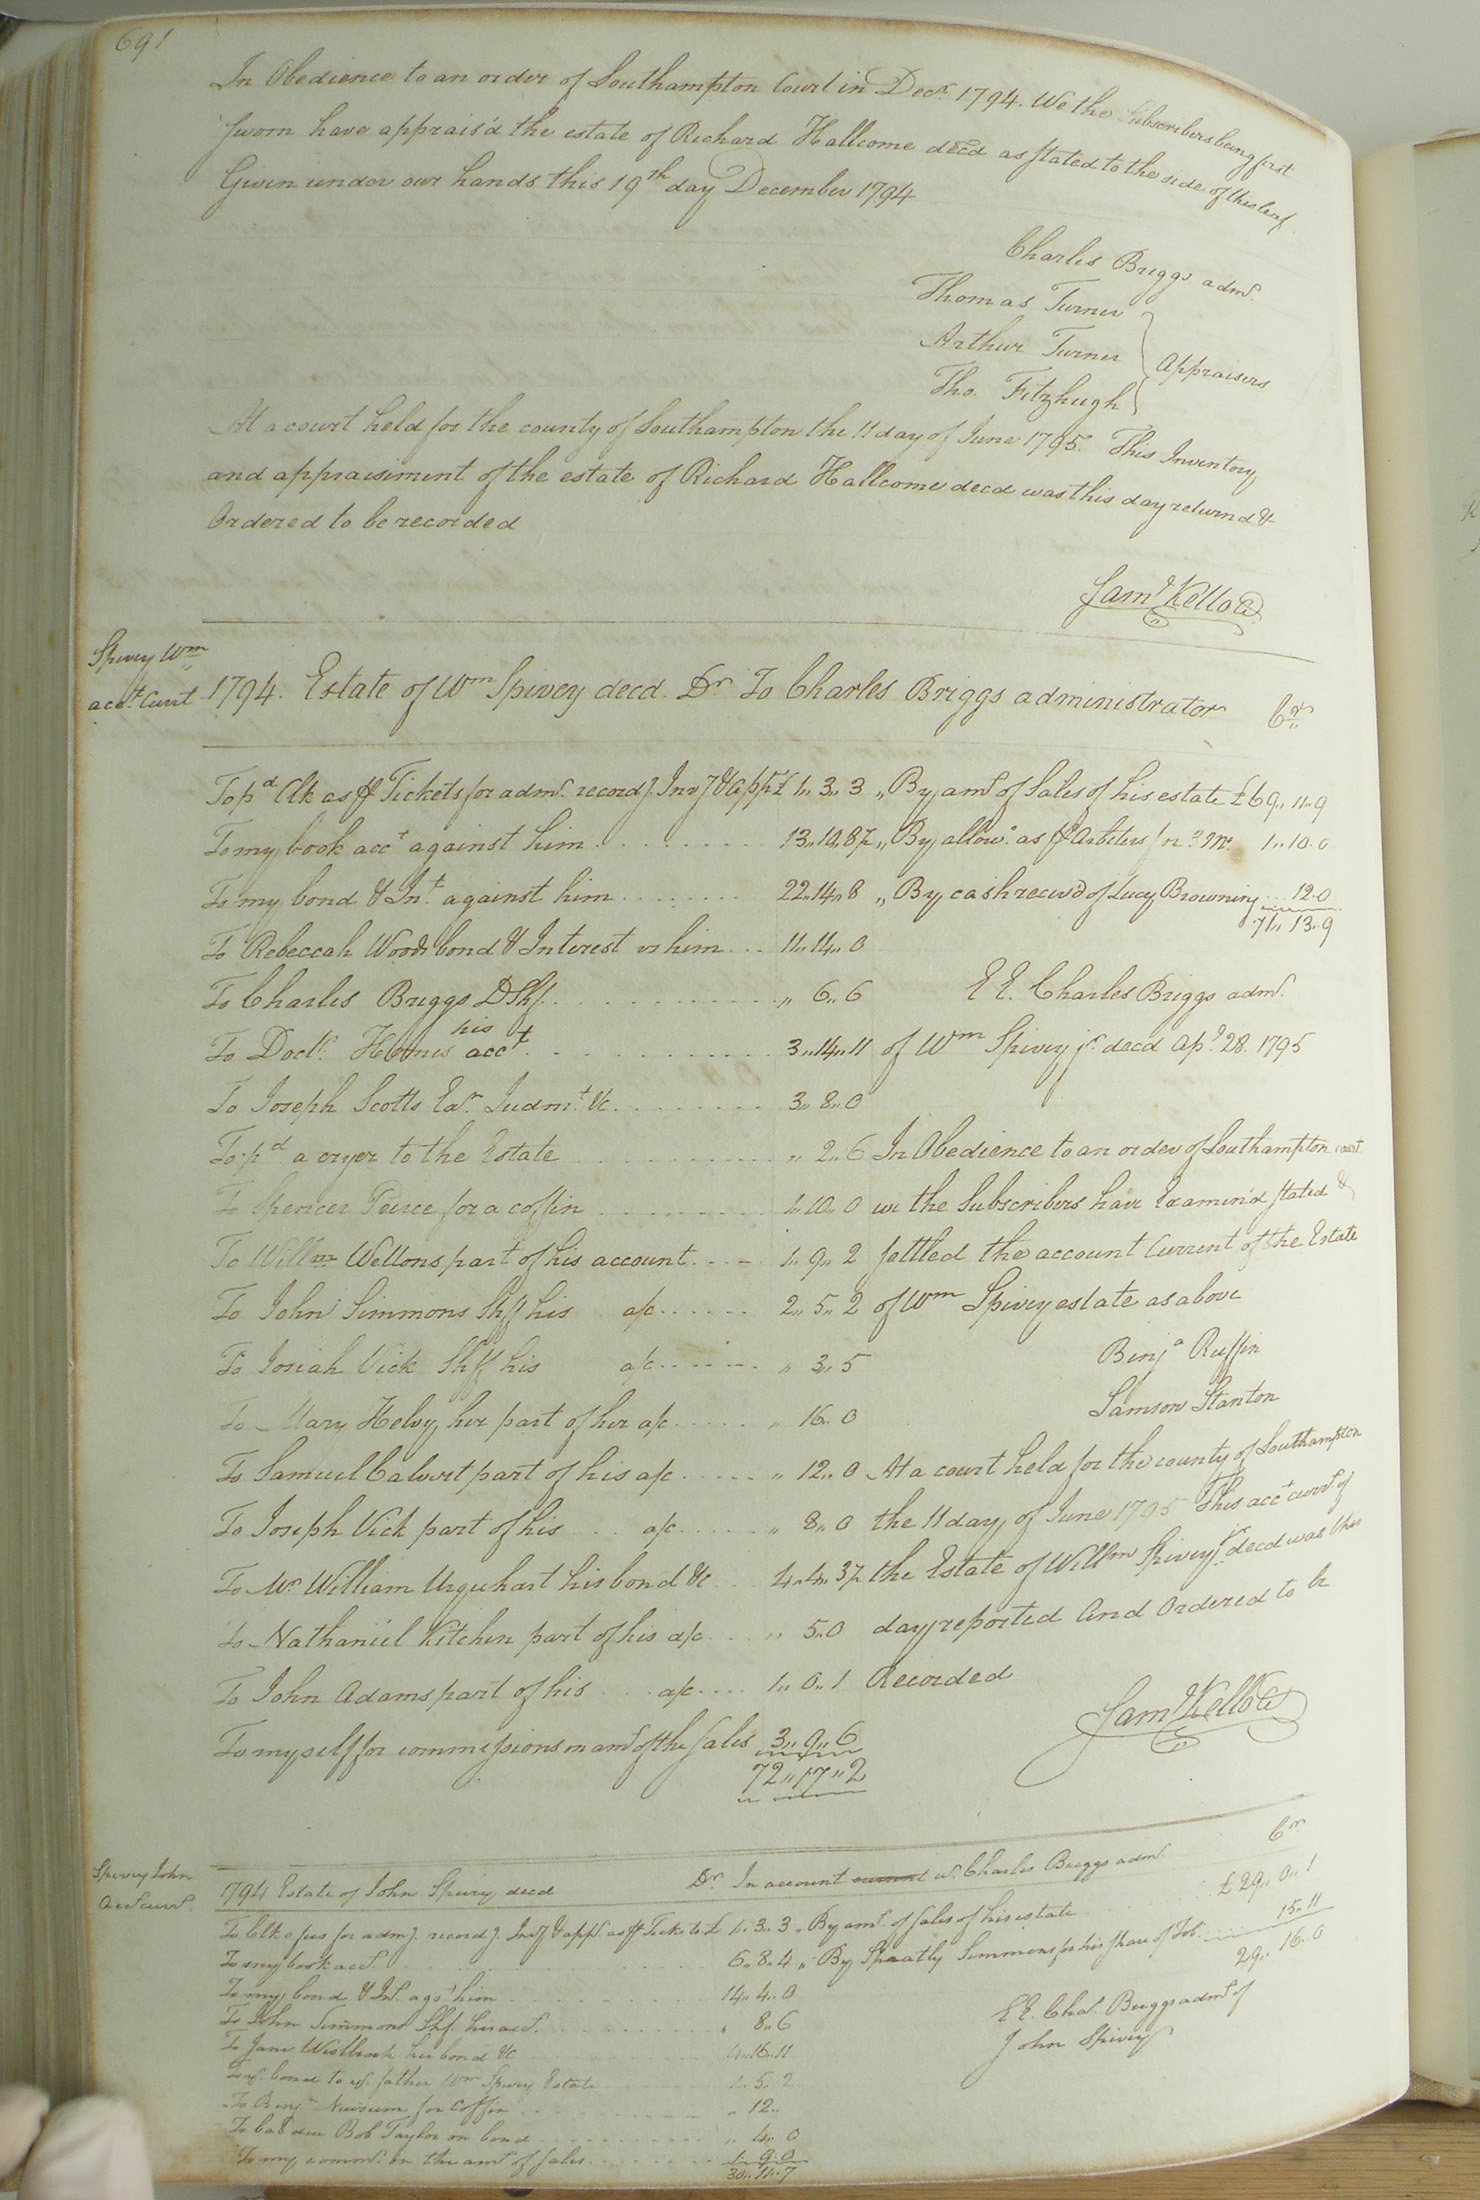 691
In Obedience to an order of Southampton Court in Decr. 1794. We the Subscribers being first
sworn have apprais'd the estate of Richard Hallcome decd as stated to the side of this leaf
Given under our hands this 19th day December 1794
Charles Briggs admr.
Thomas Turner
Arthur Turner
Appraisers
Tho. Fitzhugh
At a court held for the county of Southampton the 11 day of June 1795. This Inventory
and appraisiment of the estate of Richard Hallcome decd was this day returnd &
Ordered to be recorded
Saml Kello
Spivey Wm
acct. Curt
1794. Estate of Wm Spivey decd. Dr To Charles Briggs administrator Cr
To pd Clk as Tickets for adm. recordg. Invy & app £ 1,, 3,, 3 ,, By amt of Sales of his estate £69,, 11,, 9
To my book acct against him 13,, 10,, 8½ ,, By allow. as Arbiters 1,, 10. 0
To my bond & Int. against him 22,, 14,, 8 ,, By cash receiv'd of Lucy Browning 12. 0
71,, 13,, 9
To Rebeccah Woods bond & Interest vs him 11,, 14,, 0
To Charles Briggs DShf. ,, 6,, 6 E E. Charles Briggs adm.
To Doctr. his acct. 3,, 14,, 11 of Wm Spivey jr. decd Apl. 28. 1795
To Joseph Scotts Exr. Judmt. &c. 3,, 8,, 0
To pd a cryer to the Estate ,, 2,, 6 In Obedience to an order of Southampton court
To Spencer Peirce for a coffin 1,, 10,, 0 we the Subscribers have Examin'd stated &
To Willm Wellons part of his account 1,, 9,, 2 settled the account Current of the Estate
To John Simmons Shff his a/c 2,, 5,, 2 of Wm Spivey estate as above
To Josiah Vick Shff his a/c ,, 3,, 5 Benja Ruffin
To Mary Helvy, her part of her a/c ,, 16. 0 Samson Stanton
To Samuel Calvert part of his a/c ,, 12,, 0 At a court held for the county of Southampton
To Joseph Vick part of his a/c ,, 8,, 0 the 11 day of June 1795 This acct currt. of
To Mr William Urquhart his bond &c 4,, 4,, 3½ the Estate of Willm Spivey jr. decd was this
To Nathaniel Kitchen part of his a/c ,, 5. 0 day reported And Ordered to be
To John Adams part of his a/c 1,, 0,, 1 Recorded
To myself for commissions on amt of the Sales 3,, 9,, 6
72,, 17,, 2
Saml Kello
Spivey John
Acct curt.
1794 Estate of John Spivey decd Dr. In account current wt. Charles Briggs adm. Cr
To Clk s fees for admg. recordg. Invy & appt. as Tickets £ 1,, 3,, 3 ,, By amt. of Sales of his estate £29,, 0,, 1
To my book acct. 6,, 8,, 4 ,, By Spratly Simmons for his share of Tob. 15,, 11
29,, 16. 0
To my bond & Int. agst him 14,, 4,, 0
To John Simmons Shf. his acct. ,, 8,, 6 E E. Chas. Briggs admr. of
To Jane Westbrook her bond &c 4,, 16,, 11 John Spivey
To bond to father Wm Spivey Estate 1,, 5,, 2
To Benja Newsum for Coffin ,, 12,,
To bal due Bob Taylor on bond ,, 4,, 0
To my commn. on the amt. of Sales 1,, 9,, 0
30,, 11,, 7